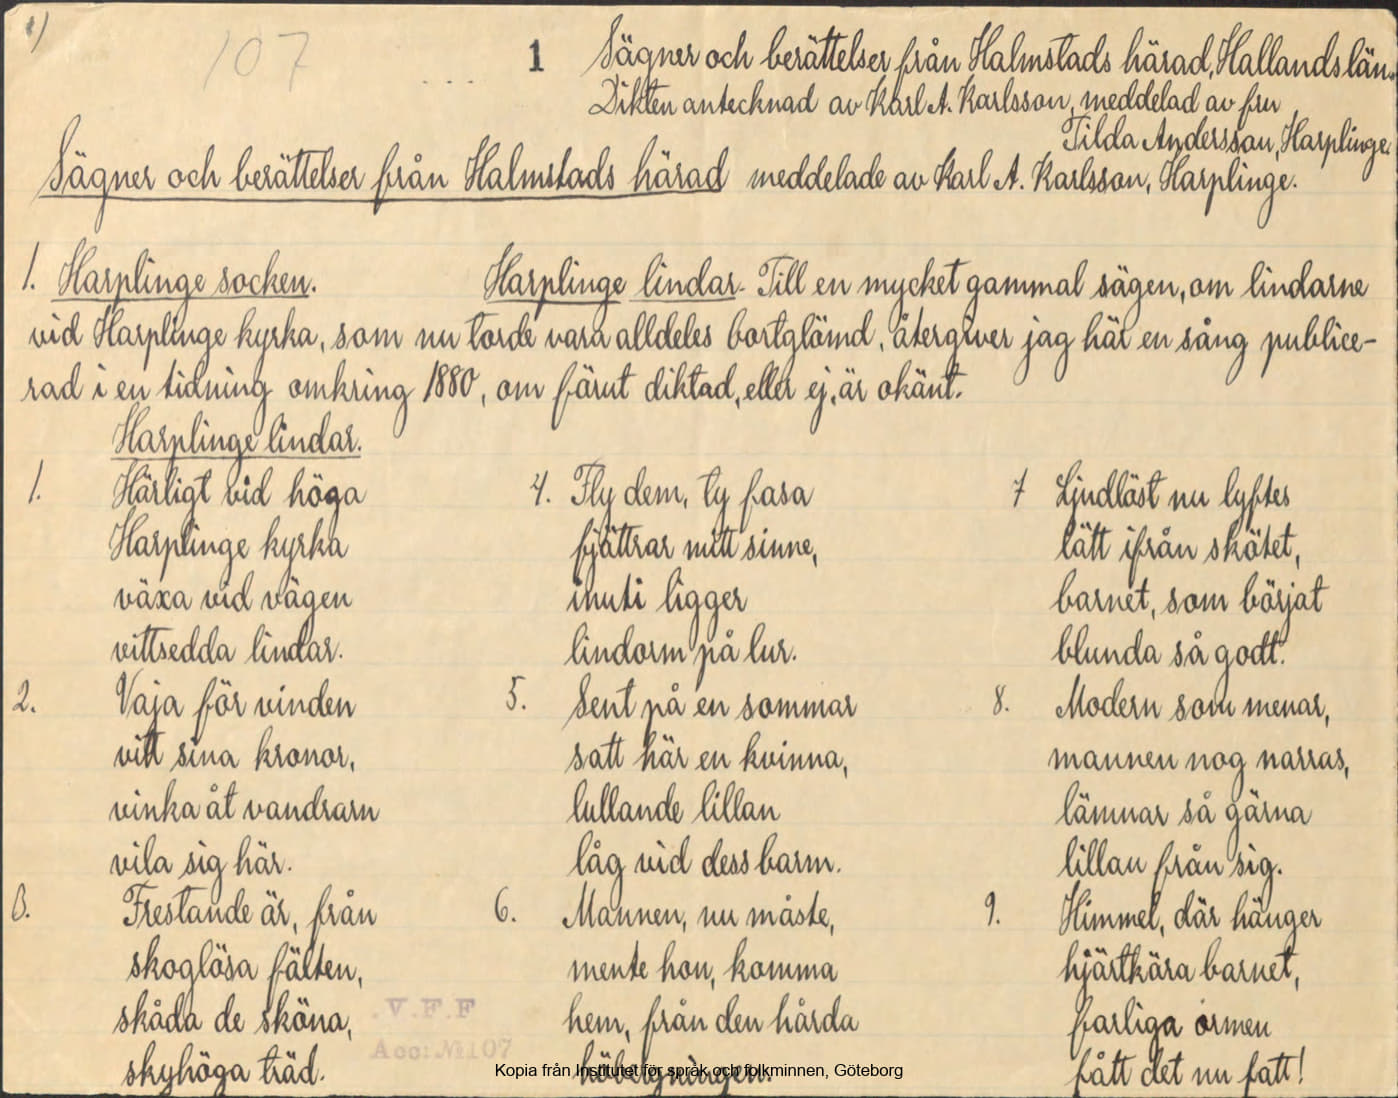 1)
107
1 Sägner och berättelser från Halmstads härad, Hallands län.
Dikten antecknad av Karl A. Karlsson, meddelad av fru
Tilda Andersson, Harplinge.
Sägner och berättelser från Halmstads härad meddelade av Karl A. Karlsson, Harplinge.
1. Harplinge socken. Harplinge lindar. Till en mycket gammal sägen, om lindarne
vid Harplinge kyrka, som nu torde vara alldeles bortglömd, återgiver jag här en sång publice-
rad i en tidning omkring 1880, om förut diktad, eller ej, är okänt.
Harplinge lindar.
1. Härligt vid höga
Harplinge kyrka
växa vid vägen
vittsedda lindar.
2. Vaja för vinden
vitt sina kronor,
vinka åt vandrarn
vila sig här.
3. Frestande är, från
skoglösa fälten,
skåda de sköna,
skyhöga träd.
4. Fly dem, ty fasa
fjättrar mitt sinne,
inuti ligger
lindorm på lur.
5. Sent på en sommar
satt här en kvinna,
lullande lillan
låg vid dess barm.
6. Mannen, nu måste,
mente hon, komma
hem, från den hårda
höbergningen.
7 Ljudlöst nu lyftes
lätt ifrån skötet,
barnet, som börjat
blunda så godt.
8. Modern som menar,
mannen nog narras,
lämnar så gärna
lillan från sig.
9. Himmel, där hänger
hjärtkära barnet,
farliga ormen
fått det nu fatt!
.V.F.F
Acc: № 107
Kopia från Institutet för språk och folkminnen, Göteborg